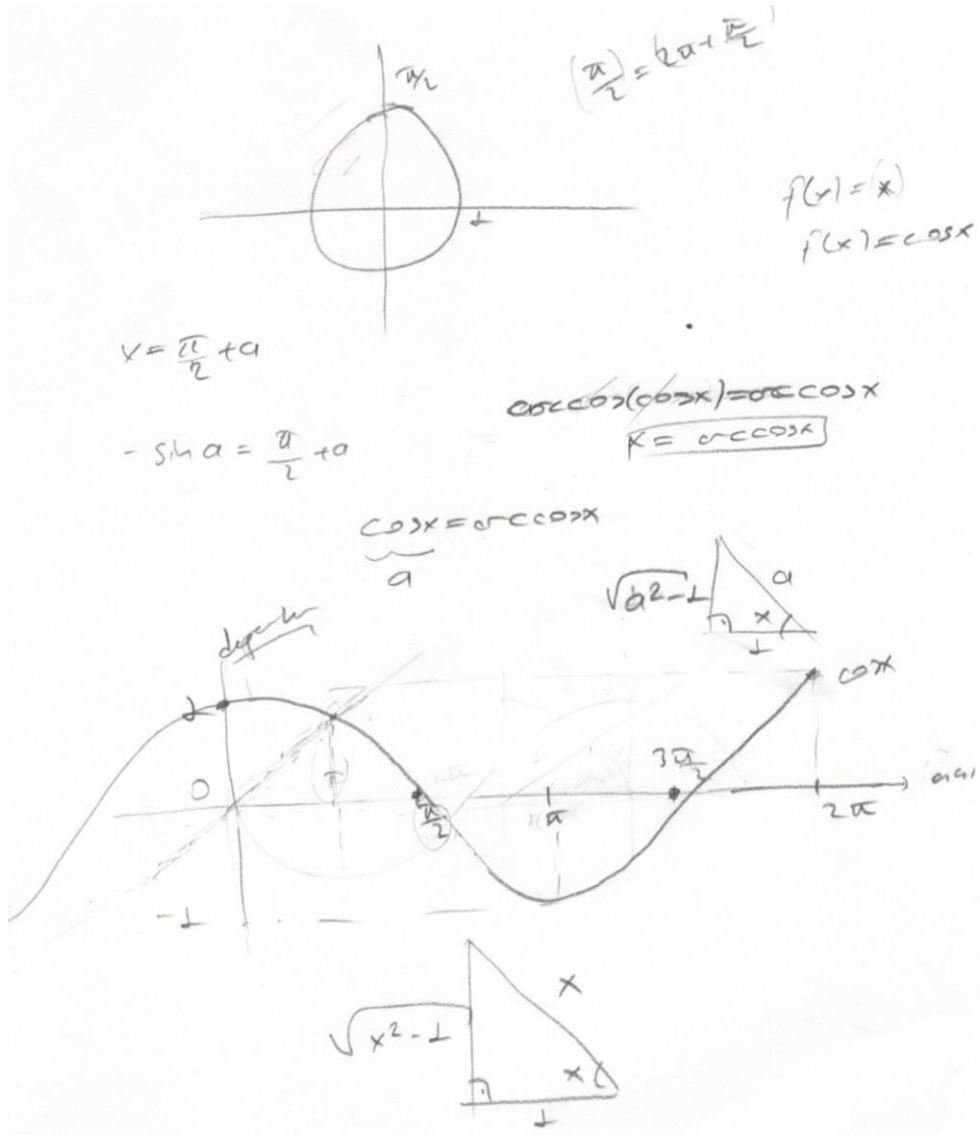 π/2
(π/2) = (2π + π/2)
1
f(x) = x
f(x) = cosx
x = π/2 + a
arccos(cosx) = arccosx
x = arccosx
- sin a = π/2 + a
cosx = arccosx
a
√a²-1
a
x
1
cosx
1
0
π/2
π
3π/2
2π
-1
√x²-1
x
x
1